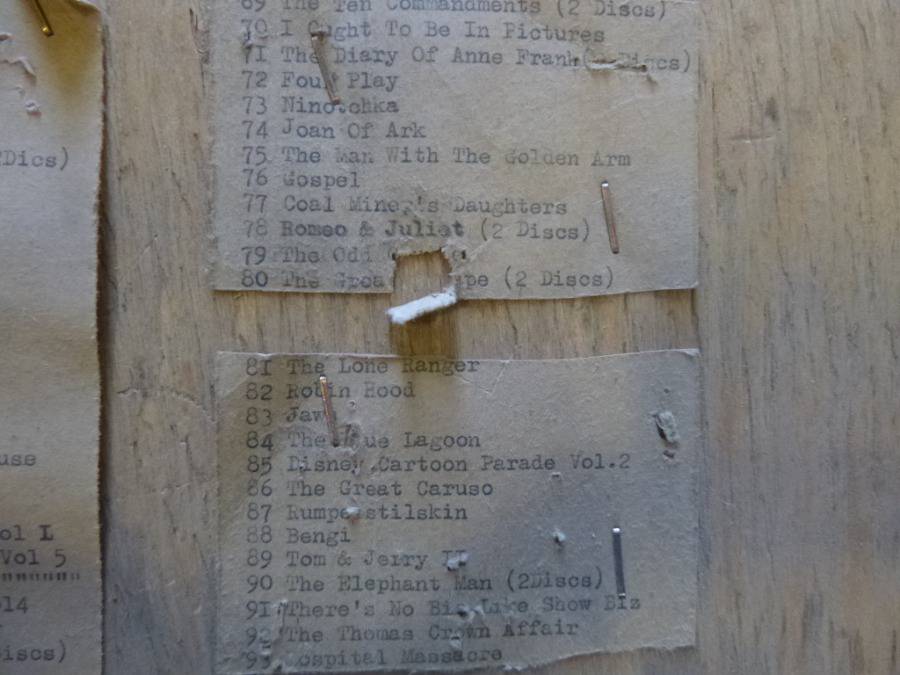 69 The Ten Commandments (2 Discs)
70 I Ought To Be In Pictures
71 The Diary Of Anne Frank( Discs)
72 Foul Play
73 Ninotchka
74 Joan Of Ark
75 The Man With The Golden Arm
76 Gospel
77 Coal Miner's Daughters
78 Romeo & Juliet (2 Discs)
79 The Odd
80 The (2 Discs)
81 The Lone Ranger
82 Robin Hood
83 Jaws
84 The Lagoon
85 Disney Cartoon Parade Vol.2
86 The Great Caruso
87 Rumpelstilskin
88 Bengi
89 Tom & Jerry II
90 The Elephant Man (2Discs)
91 There's No Biz Like Show Biz
92 The Thomas Crown Affair
93 Hospital Massacre
Dics)
use
ol L
Vol 5
14
iscs)